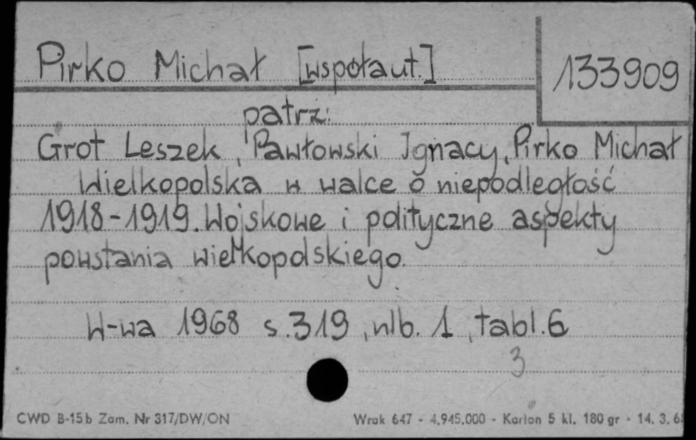 Pirko Michał [współaut.]
133909
patrz:
Grot Leszek, Pawłowski Ignacy, Pirko Michał
Wielkopolska w walce o niepodległość
1918-1919. Wojskowe i polityczne aspekty
powstania wielkopolskiego.
W-wa 1968 s. 319, nlb. 1, tabl. 6
3
CWD B-15b Zam. Nr 317/DW/ON
Wrak 647 - 4.945.000 - Karton 5 kl. 180 gr - 14. 3. 6